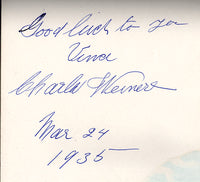 Good luck to you
Vina
Charles Weinert
Mar 24
1935